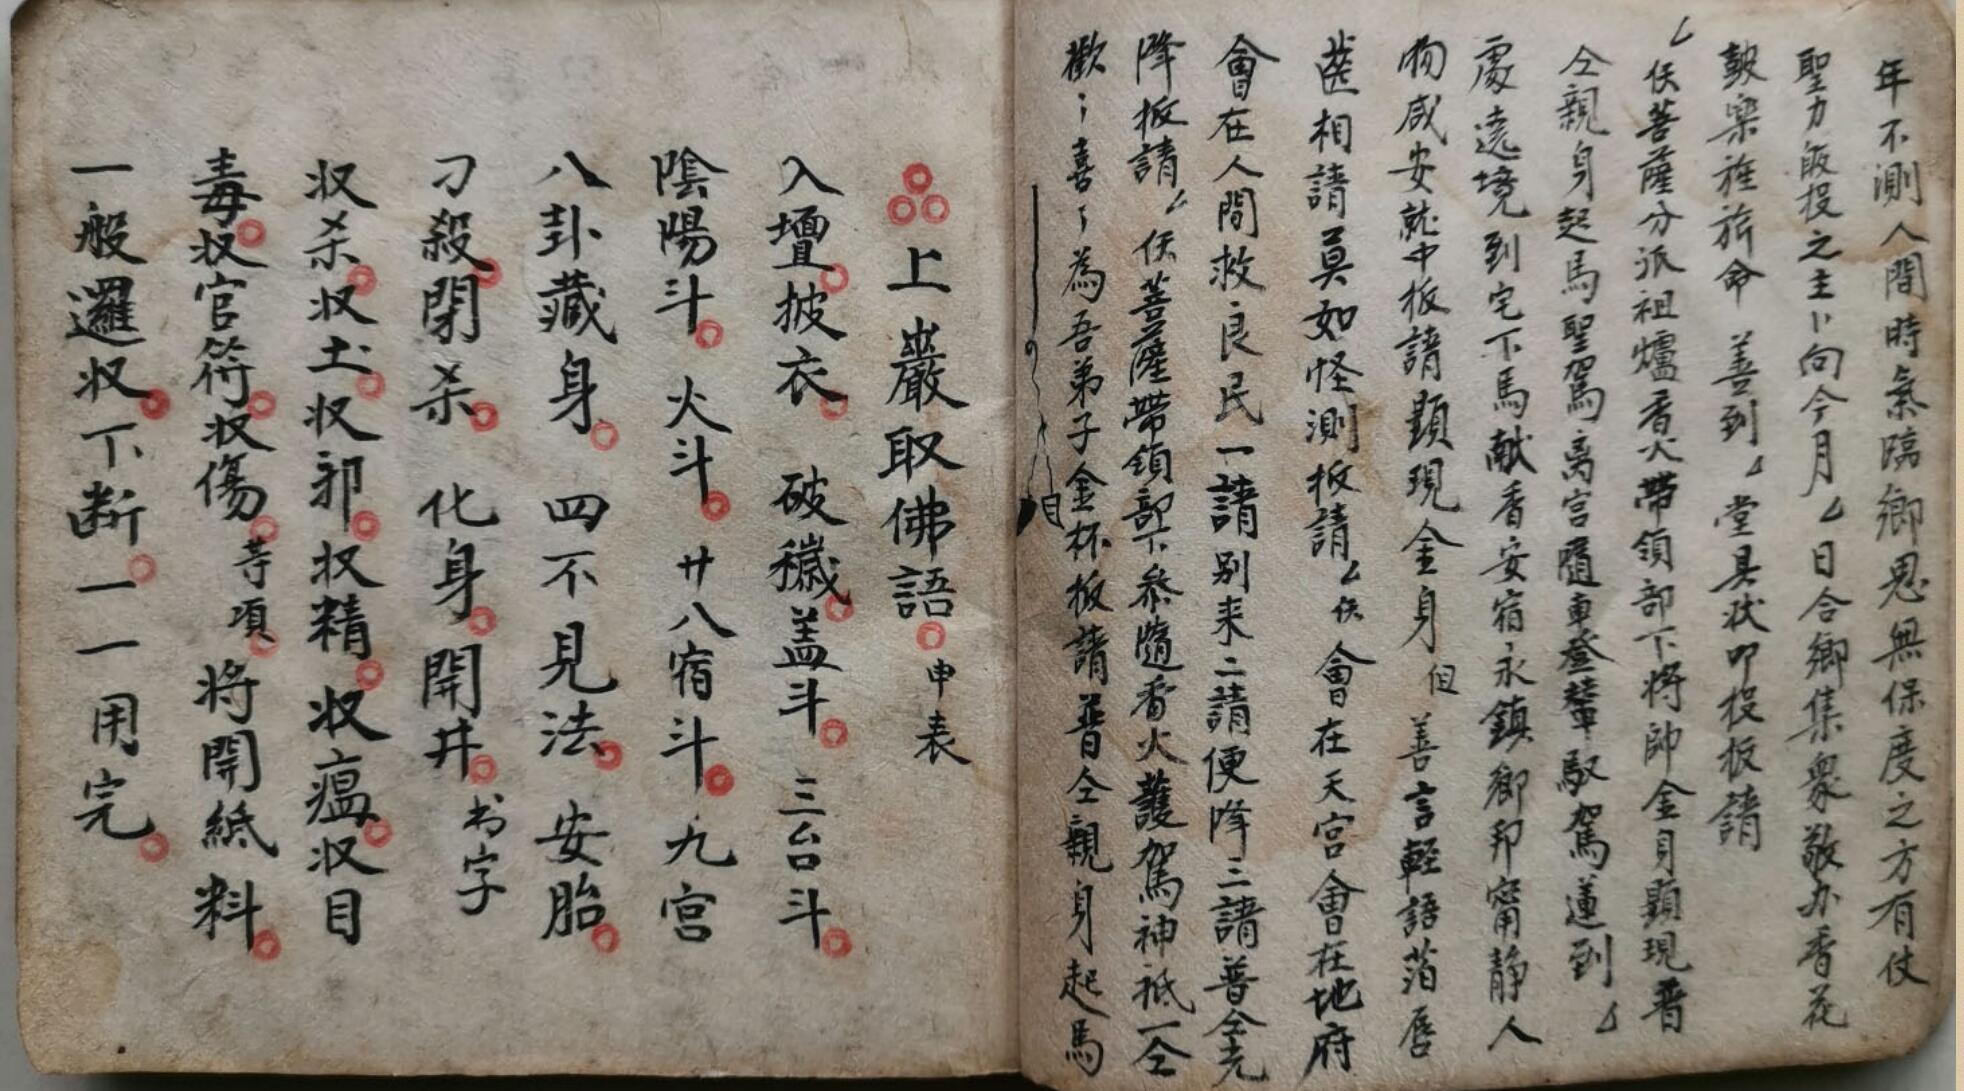 年不測人間時氣臨鄉思無保度之方有仗
聖力皈投之主卜向今月日合鄉集衆敬办香花
皷樂旌旂命善到堂具状叩投板請
仸菩薩分派祖爐香火帶領部下将帥金身顯現普
仝親身起馬聖駕离宫隨車登輦馭駕蓮到
處遶境到宅下馬献香安宿永鎮鄉邦甯静人
物咸安就中板請顕現金身但善言輕語落唇
莚相請莫如怪測板請仸會在天宫會在地府
會在人間救良民一請别来二請便降三請普仝光
降板請仸菩薩帶領部下叅隨香火護駕神祇一仝
歡〻喜〻為吾弟子金杯板請普仝親身起馬
上巖取佛語申表
入壇披衣 破穢盖斗 三台斗
陰陽斗 火斗 廿八宿斗 九宫
八卦藏身 四不見法 安胎
刁殺閉杀 化身開井 书字
收杀收土收邪收精收瘟收目
毒收官符收傷等項 将開紙料
一般邏收下断一一用完